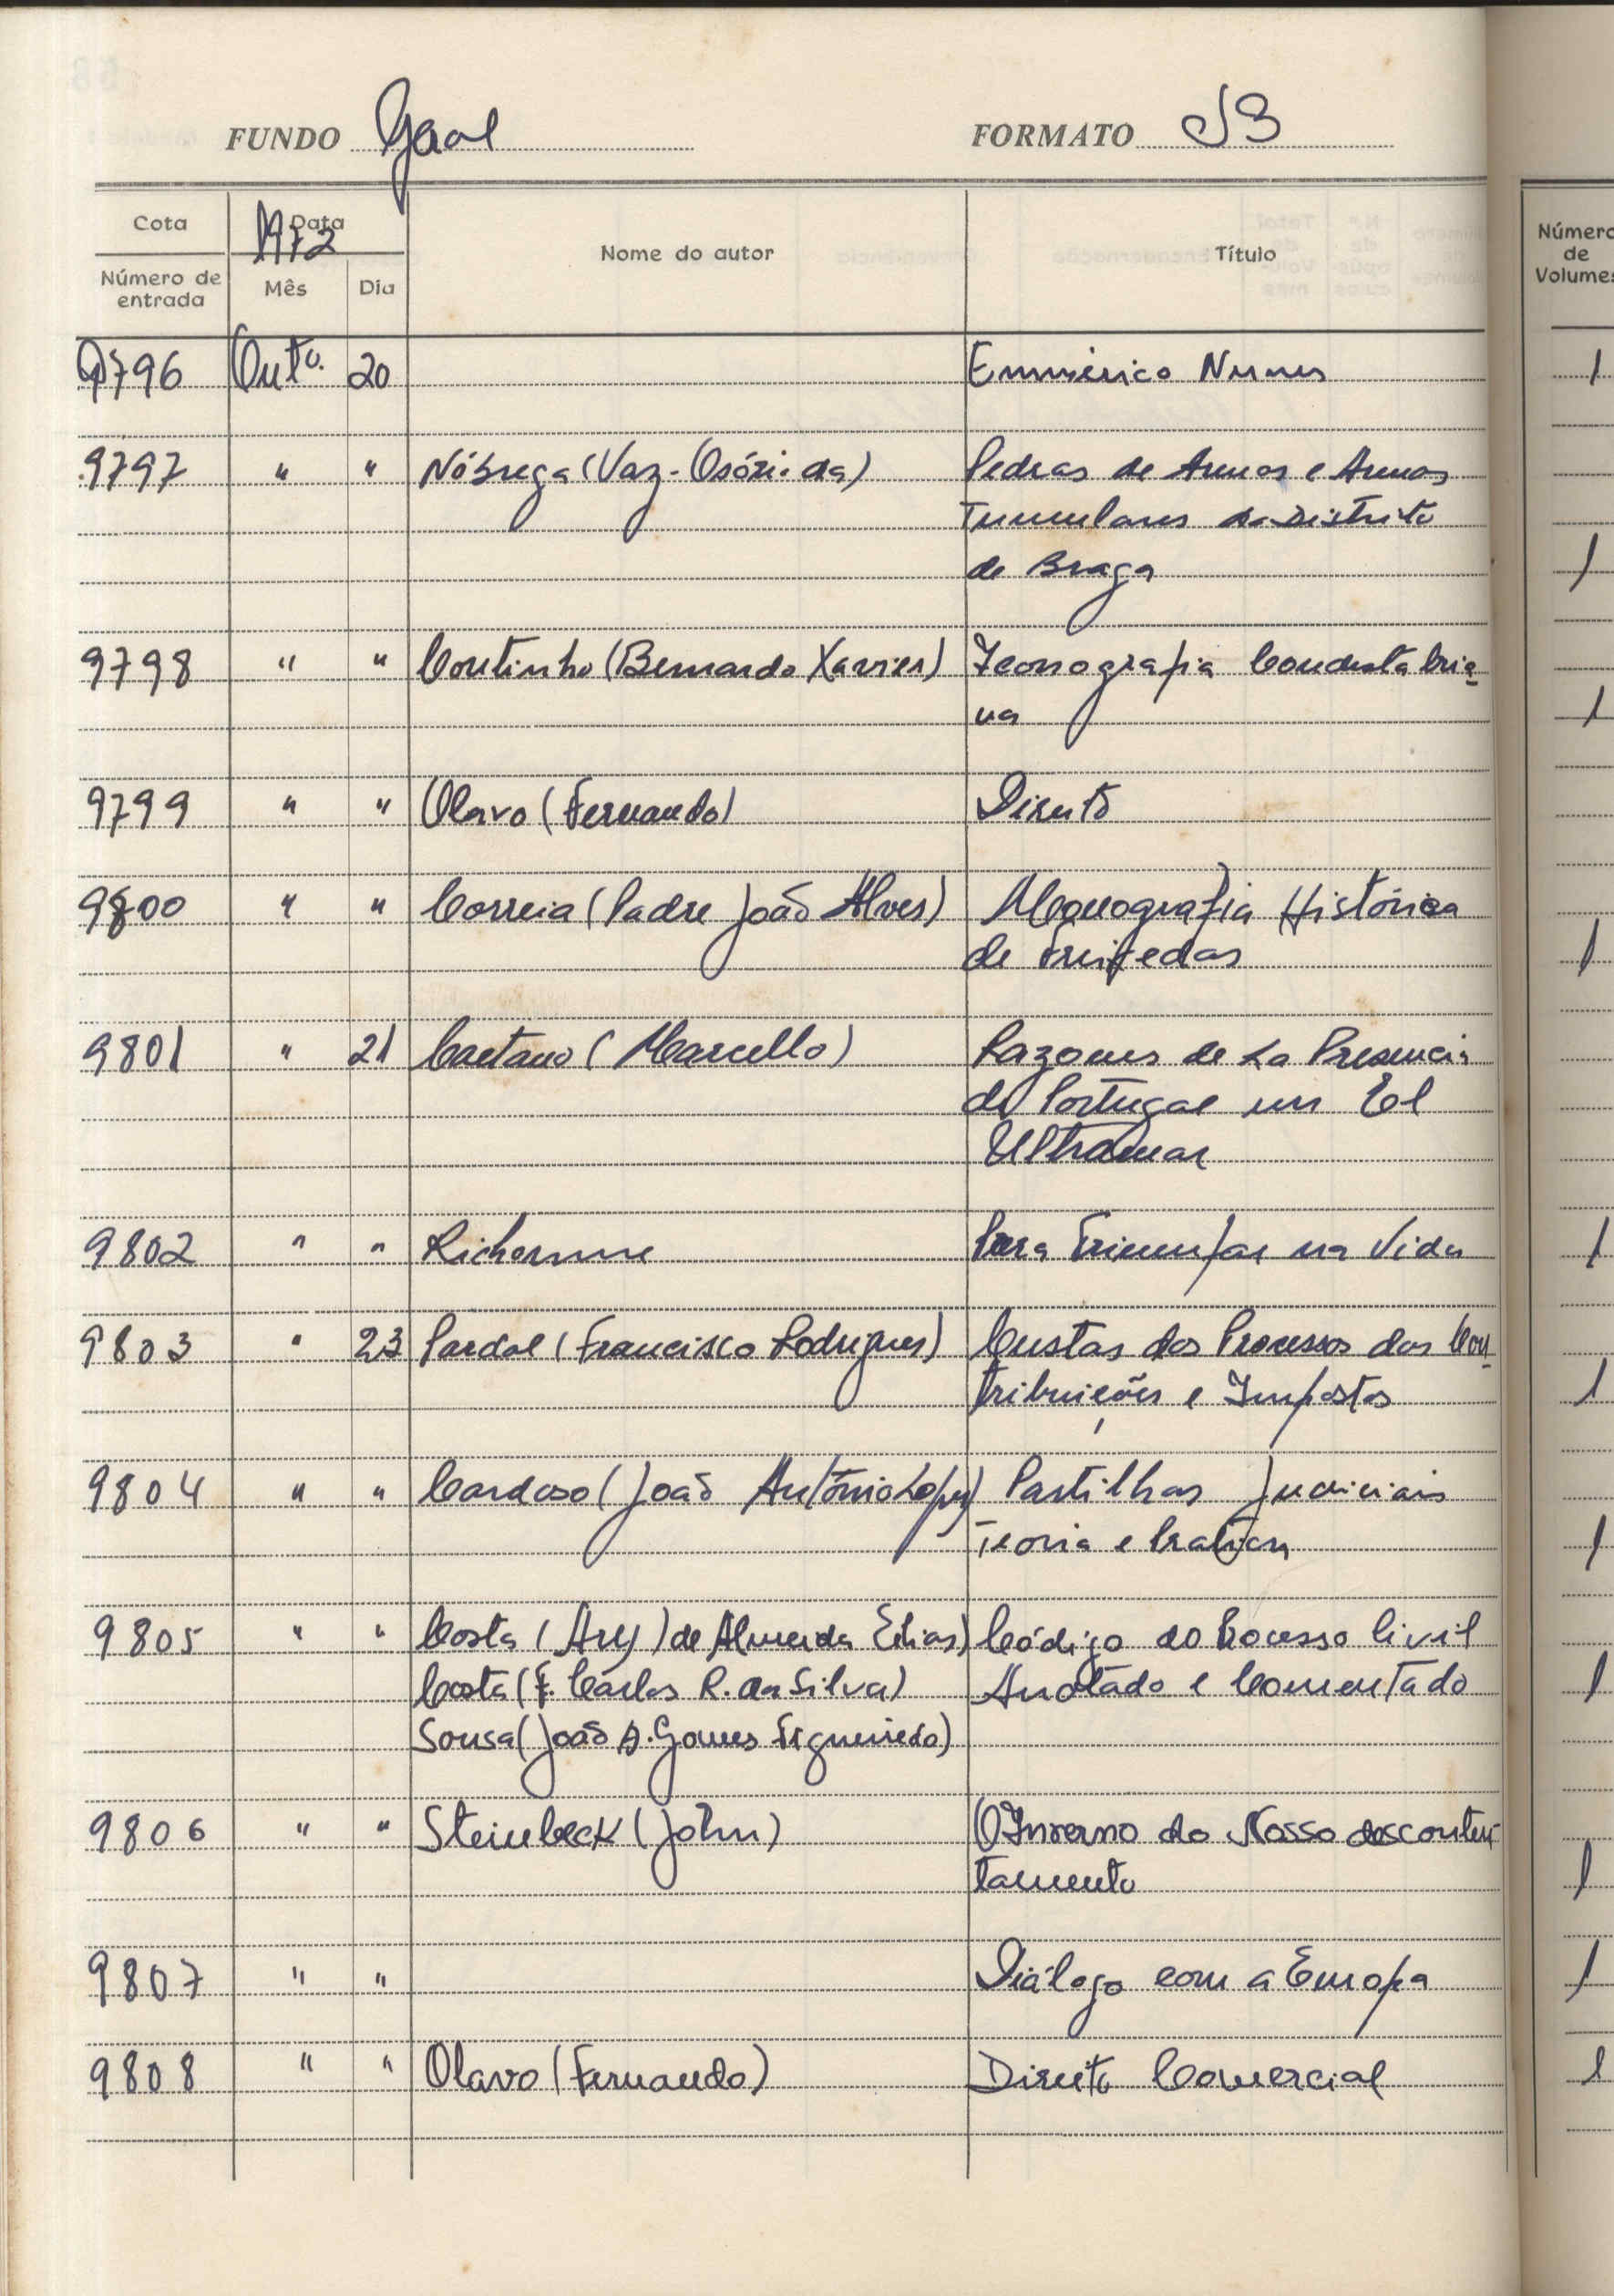 FUNDO Geral FORMATO J3
Cota Data Nome do autor Título Número de Volumes
1972
Número de entrada Mês Dia
9796 Outº. 20 Emmérico Nunes 1
9797 " " Nóbrega (Vaz-Osório da) Pedras de Armas e Armas
Tumulares do Distrito
de Braga 1
9798 " " Coutinho (Bernardo Xavier) Iconografia Condestabria-
na 1
9799 " " Olavo (Fernando) Direito
9800 " " Correia (Padre João Alves) Monografia Histórica
de Freixedas 1
9801 " 21 Caetano (Marcello) Razones de La Presencia
de Portugal en El
Ultramar
9802 " " Para Triunfar na Vida 1
9803 " 23 Pardal (Francisco Rodrigues) Custas dos Processos das Con-
tribuições e Impostos 1
9804 " " Cardoso (João António Lopes) Partilhas Judiciais
Teoria e Pratica 1
9805 " " Costa (Ary) de Almeida Elias) Código do Processo Civil
Costa (F. Carlos R. da Silva) Anotado e Comentado 1
Sousa (João A. Gomes Figueiredo)
9806 " " Steinbeck (John) O Inverno do Nosso desconten-
tamento 1
9807 " " Diálogo com a Europa 1
9808 " " Olavo (Fernando) Direito Comercial 1